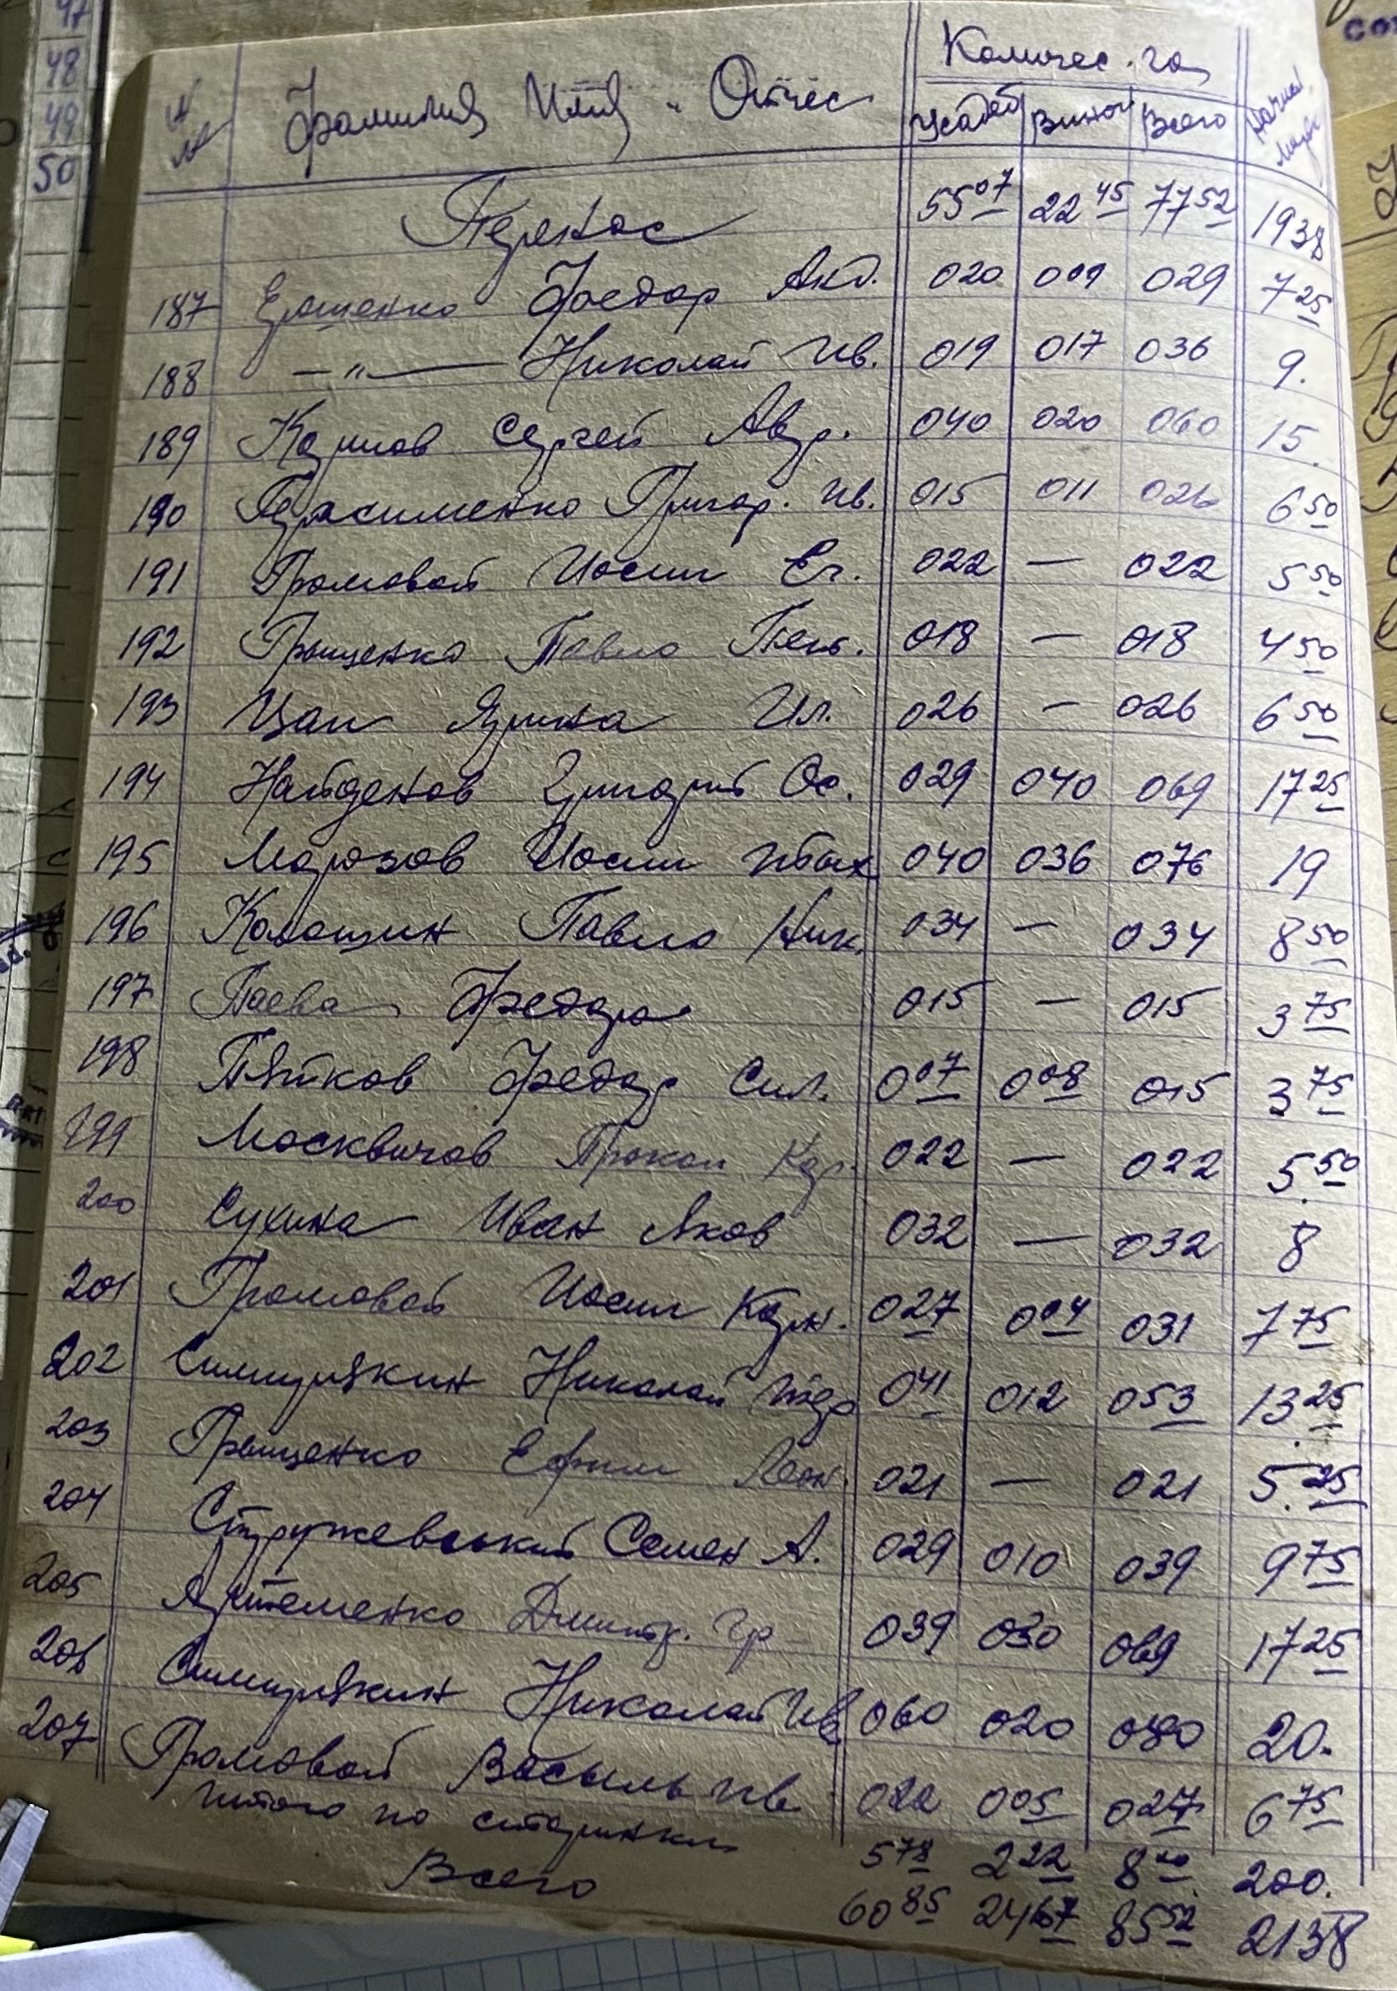 47
48
49
50
N
Фамилия Имя и Отчес
Количес. га
Усадеб Виногр Всего
Перенос 55 07 22 45 77 52 1938
187 Ерошенко Федор Акд. 020 009 029 7 25
188 — " — Николай Ив. 019 017 036 9.
189 Карпов Сергей Авр. 040 020 060 15.
190 Герасименко Григор. Ив. 015 011 026 6 50
191 Громовой Иосип Ег. 022 — 022 5 50
192 Грыценко Павло Пет. 018 — 018 4 50
193 Цап Ярина Ил. 026 — 026 6 50
194 Найденов Григорий Ос. 029 040 069 17 25
195 Морозов Иосип 040 036 076 19
196 Колощин Павло Ник. 034 — 034 8 50
197 Паева Федора 015 — 015 3 75
198 Пятков Федор Сил. 0 07 0 08 015 3 75
199 Москвичов Прокоп Кар. 022 — 022 5.50
200 Сухина Иван Яков 032 — 032 8
201 Громовой Иосип Корн. 027 004 031 7 75
202 Николай Фед 041 012 053 13.25
203 Грыценко Ефим Леон. 021 — 021 5.25
204 Стружевський Семен А. 029 010 039 9 75
205 Артеменко Дмитр. Гр 039 030 069 17 25
206 Николай Ив 060 020 080 20.
207 Громовой Васыль Ив 022 005 027 6 75
Итого по сторинки 5 78 2 22 8 00 200.
Всего 60 85 24 67 85 52 2138